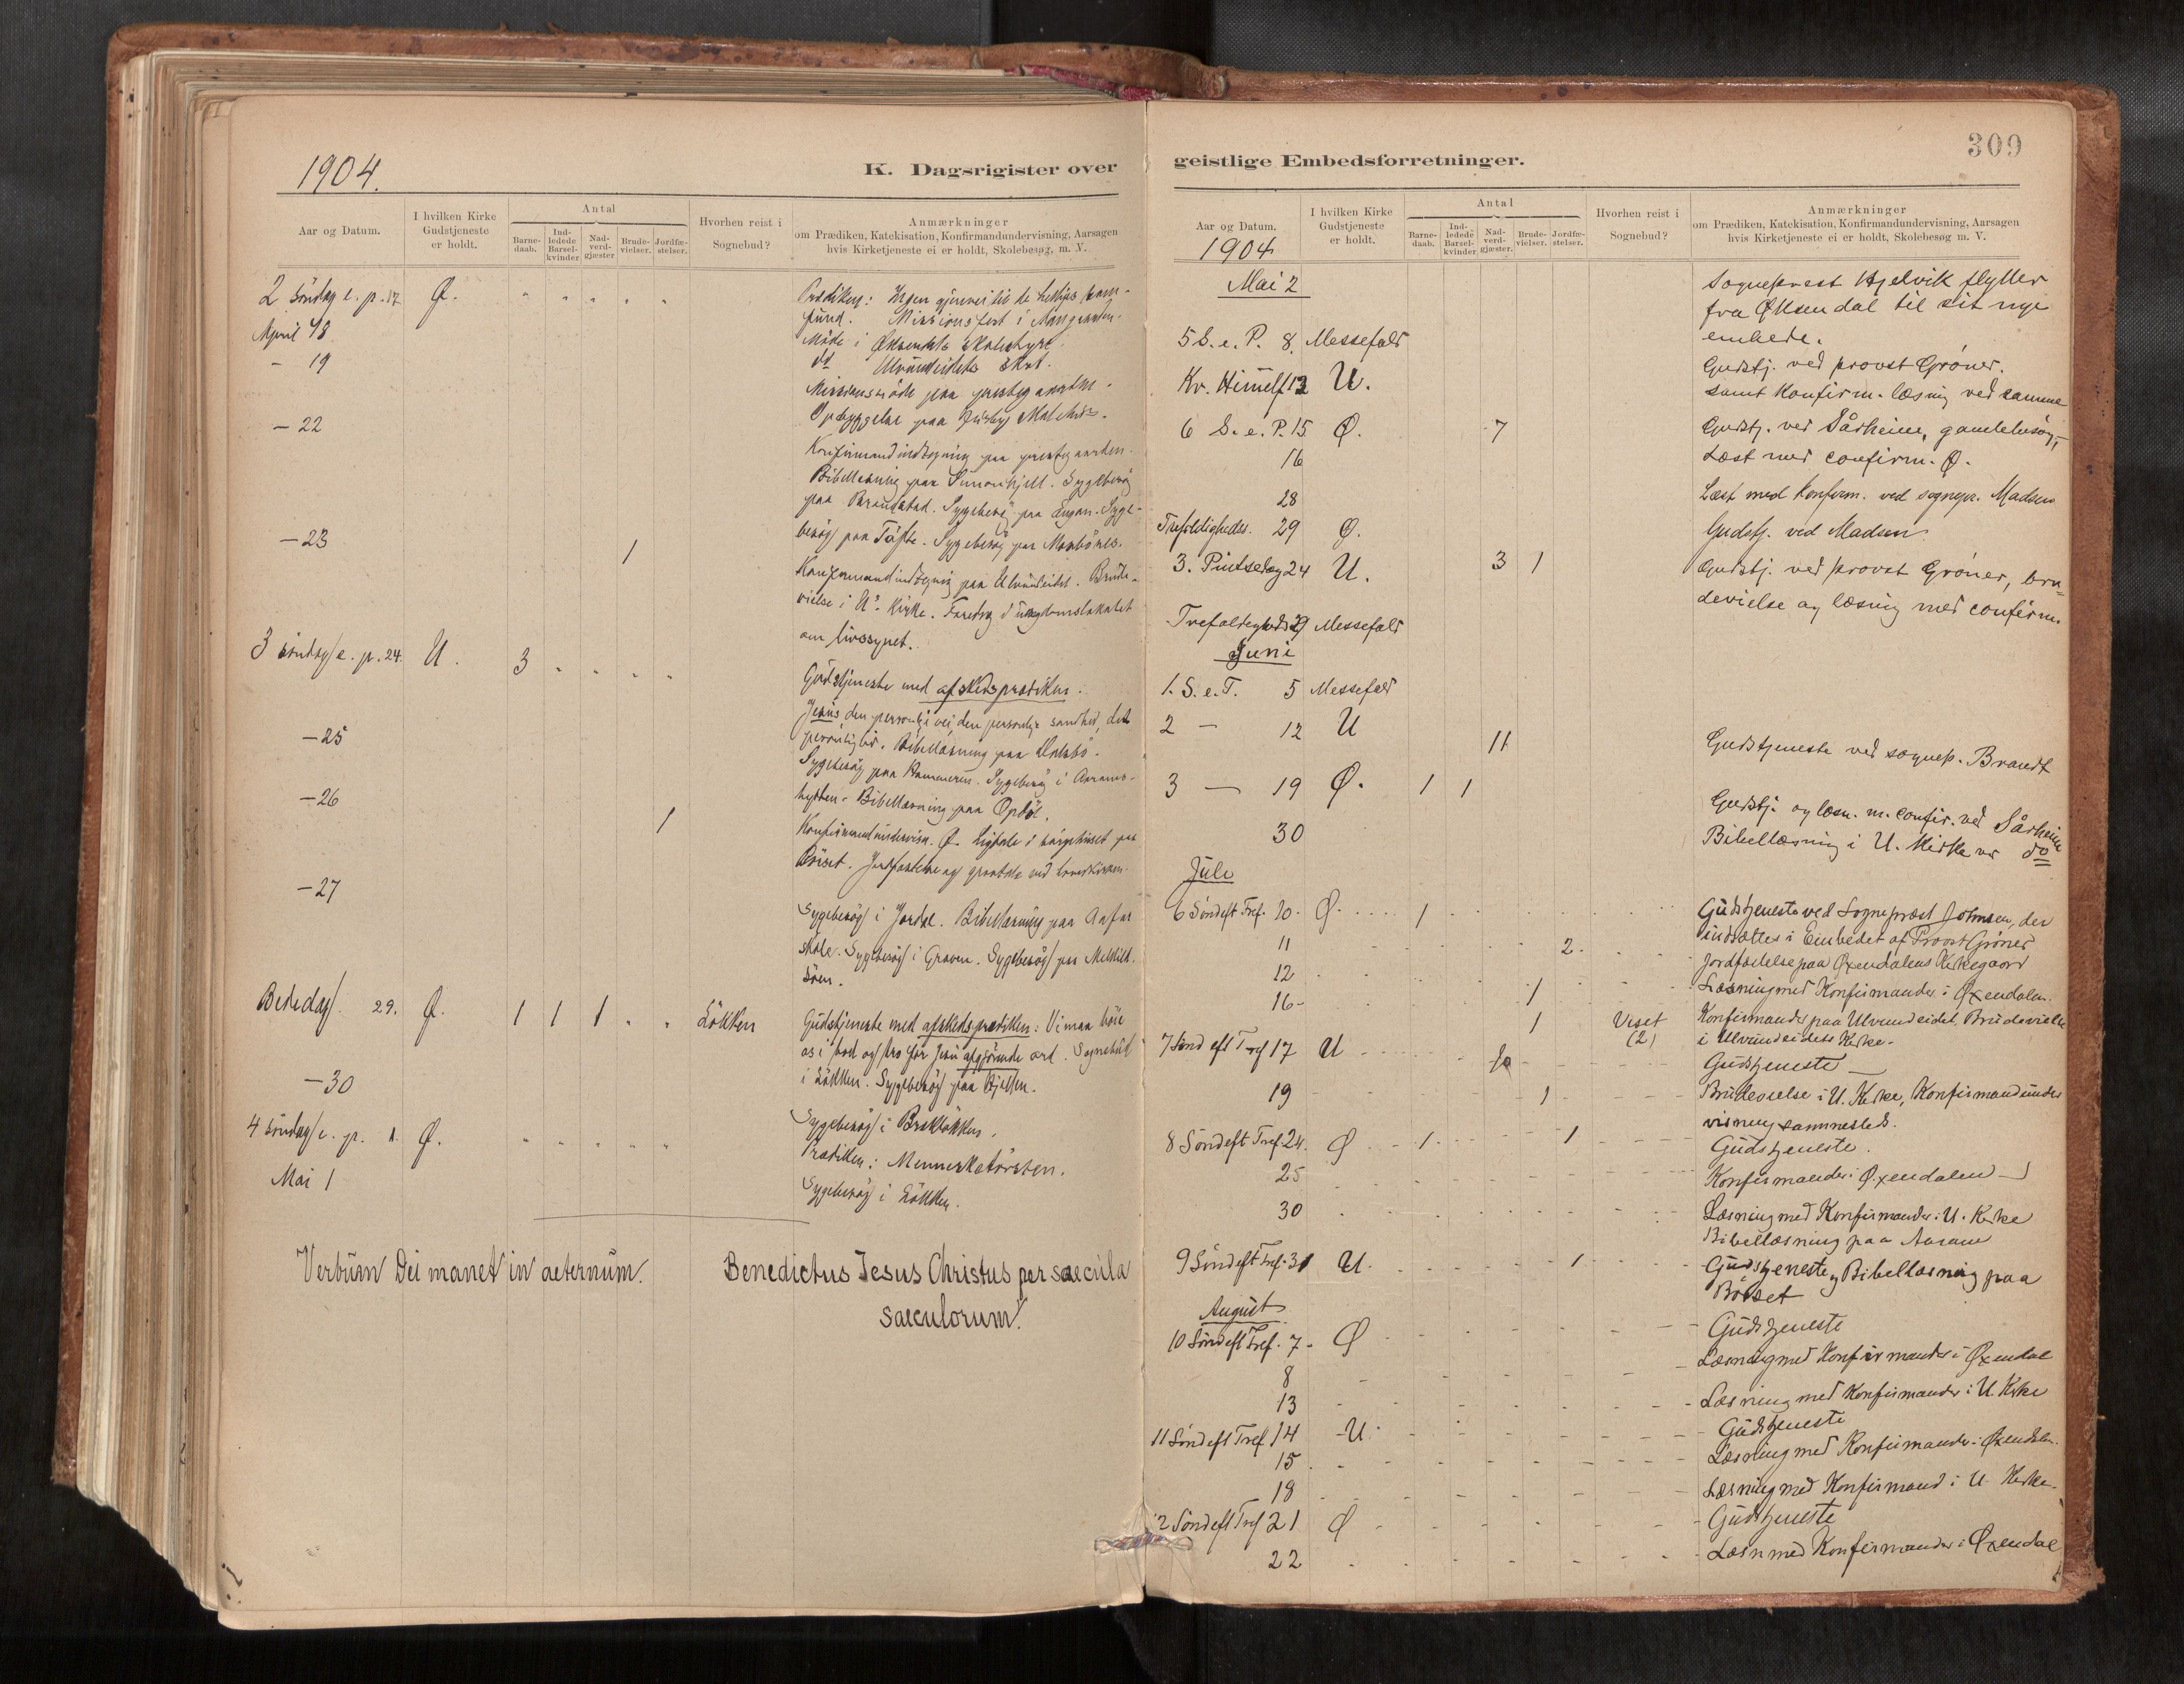 1904.
K. Dagsrigister over
Aar og Datum.
I hvilken Kirke Gudstjeneste er holdt.
Antal
Barne-daab.
Ind-ledede Barsel-kvinder
Nad-verd-gjæster
Brude-vielser.
Jordfæ-stelser.
Hvorhen reist i Sognebud?
Anmærkninger
om Prædiken, Katekisation, Konfirmandundervisning, Aarsagen
hvis Kirketjeneste ei er holdt, Skolebesøg, m. V.
2 søndag e. p. 17 Ø. Prædiken: Ingen til de helliges sam-
fund. Missionsfest i
April 18 Møde i Øksendals skolestyre.
- 19 do Ulvundeidets skst.
Missionsmøde paa prestegaarden.
- 22 Opbyggelse paa
Konfirmandindtegning paa prestegaarden.
Bibellæsning paa Sygebesøg
paa Brandstad. Sygebesøg paa Syge-
besøg paa Tåfte. Sygebesøg paa
- 23 1 Konfirmandindtegning paa Ulvundeidet. Brude-
vielse i U's Kirke. Foredrag i ungdomslokalet
om livssynet.
3 søndag e. p. 24. U. 3 Gudstjeneste med afskedsprædiken.
Jesus den personlige vei, den personlige sandhed, det
Bibellæsning paa
- 25 Sygebesøg paa Sygebesøg i
hytten. Bibellæsning paa Opdøl.
- 26 1 Konfirmandundervisn. Ø. Ligtale i sørgehuset paa
Jordfæstelse og
- 27 Sygebesøg i Jordal. Bibellæsning paa
skole. Sygebesøg i Graven. Sygebesøg paa
Bededag. 29. Ø. 1 1 1 Løkken Gudstjeneste med afskedsprædiken: Vi maa bøie
os i bod og tro for Jesu afgjørende ord. Sognebud
i Løkken. Sygebesøg paa
- 30 Sygebesøg i
4 søndag e. p. 1. Ø. Prædiken: Mennesketørsten.
Mai 1 Sygebesøg i Løkken.
Verbum Dei manet in aeternum. Benedictus Jesus Christus per saecula
saeculorum!
309
geistlige Embedsforretninger.
Aar og Datum.
I hvilken Kirke Gudstjeneste er holdt.
Antal
Barne-daab.
Ind-ledede Barsel-kvinder
Nad-verd-gjæster.
Brude-vielser.
Jordfæ-stelser.
Hvorhen reist i Sognebud?
Anmærkninger
om Prædiken, Katekisation, Konfirmandundervisning, Aarsagen
hvis Kirketjeneste ei er holdt, Skolebesøg m. V.
1904
Mai 2 Sogneprest Hjelvik flytter
fra Øksendal til sit nye
embede.
5 S. e. P. 8. Messefald
Kr. Himmelf 12 U. Gudstj. ved provst Grøner.
samt konfirm. læsning ved samme
6 S. e. P. 15 Ø. 7 Gudstj. ved Sårheim,
16 Læst med confirm. Ø.
28 Læst med konfirm. ved sognepr. Madsen
Trefoldigheds. 29 Ø. Gudstj. ved Madsen
3. Pintsedag 24 U. 3 1 Gudstj. ved provst Grøner, bru-
devielse og læsning med confirm.
Trefoldigheds 29 Messefald
Juni
1. S. e. T. 5 Messefald
2 - 12 U 11 Gudstjeneste ved sognep. Brandt
3 - 19 Ø. 1 1 Gudstj. og læsn. m. confir. ved Sårheim
30 Bibellæsning i U. Kirke ved do
Juli
6 Sønd eft Tref. 10. Ø. 1 Gudstjeneste ved Sognepræst Johnsen, der
indsættes i Embedet af Provst Grøner
11 2. Jordfæstelse paa Øxendalens Kirkegaard
12 Læsning med Konfirmander i Øxendalen.
16- 1 Konfirmander paa Ulvundeidet. Brudevielse
1 Viset (2) i Ulvundeidets Kirke.
7 Sønd eft Tref 17 U 10 Gudstjeneste
19 1 Brudevielse i U. Kirke, Konfirmandunder
visning sammesteds.
8 Sønd eft Tref. 24. Ø 1 1 Gudstjeneste.
25 Konfirmander i Øxendalen
30 Læsning med Konfirmander i U. Kirke
Bibellæsning paa
9 Sønd eft Tref. 31 U. 1 Gudstjeneste, Bibellæsning paa
Børset
August
10 Sønd eft Tref. 7. Ø Gudstjeneste
8 Læsning med Konfirmander i Øxendal
13 Læsning med Konfirmander i U. Kirke
11 Sønd eft Tref 14 U. Gudstjeneste
15 Læsning med Konfirmander i Øxendalen.
18 Læsning med Konfirmand i U Kirke.
12 Sønd eft Tref 21 Ø Gudstjeneste
22 Læsn med Konfirmander i Øxendal